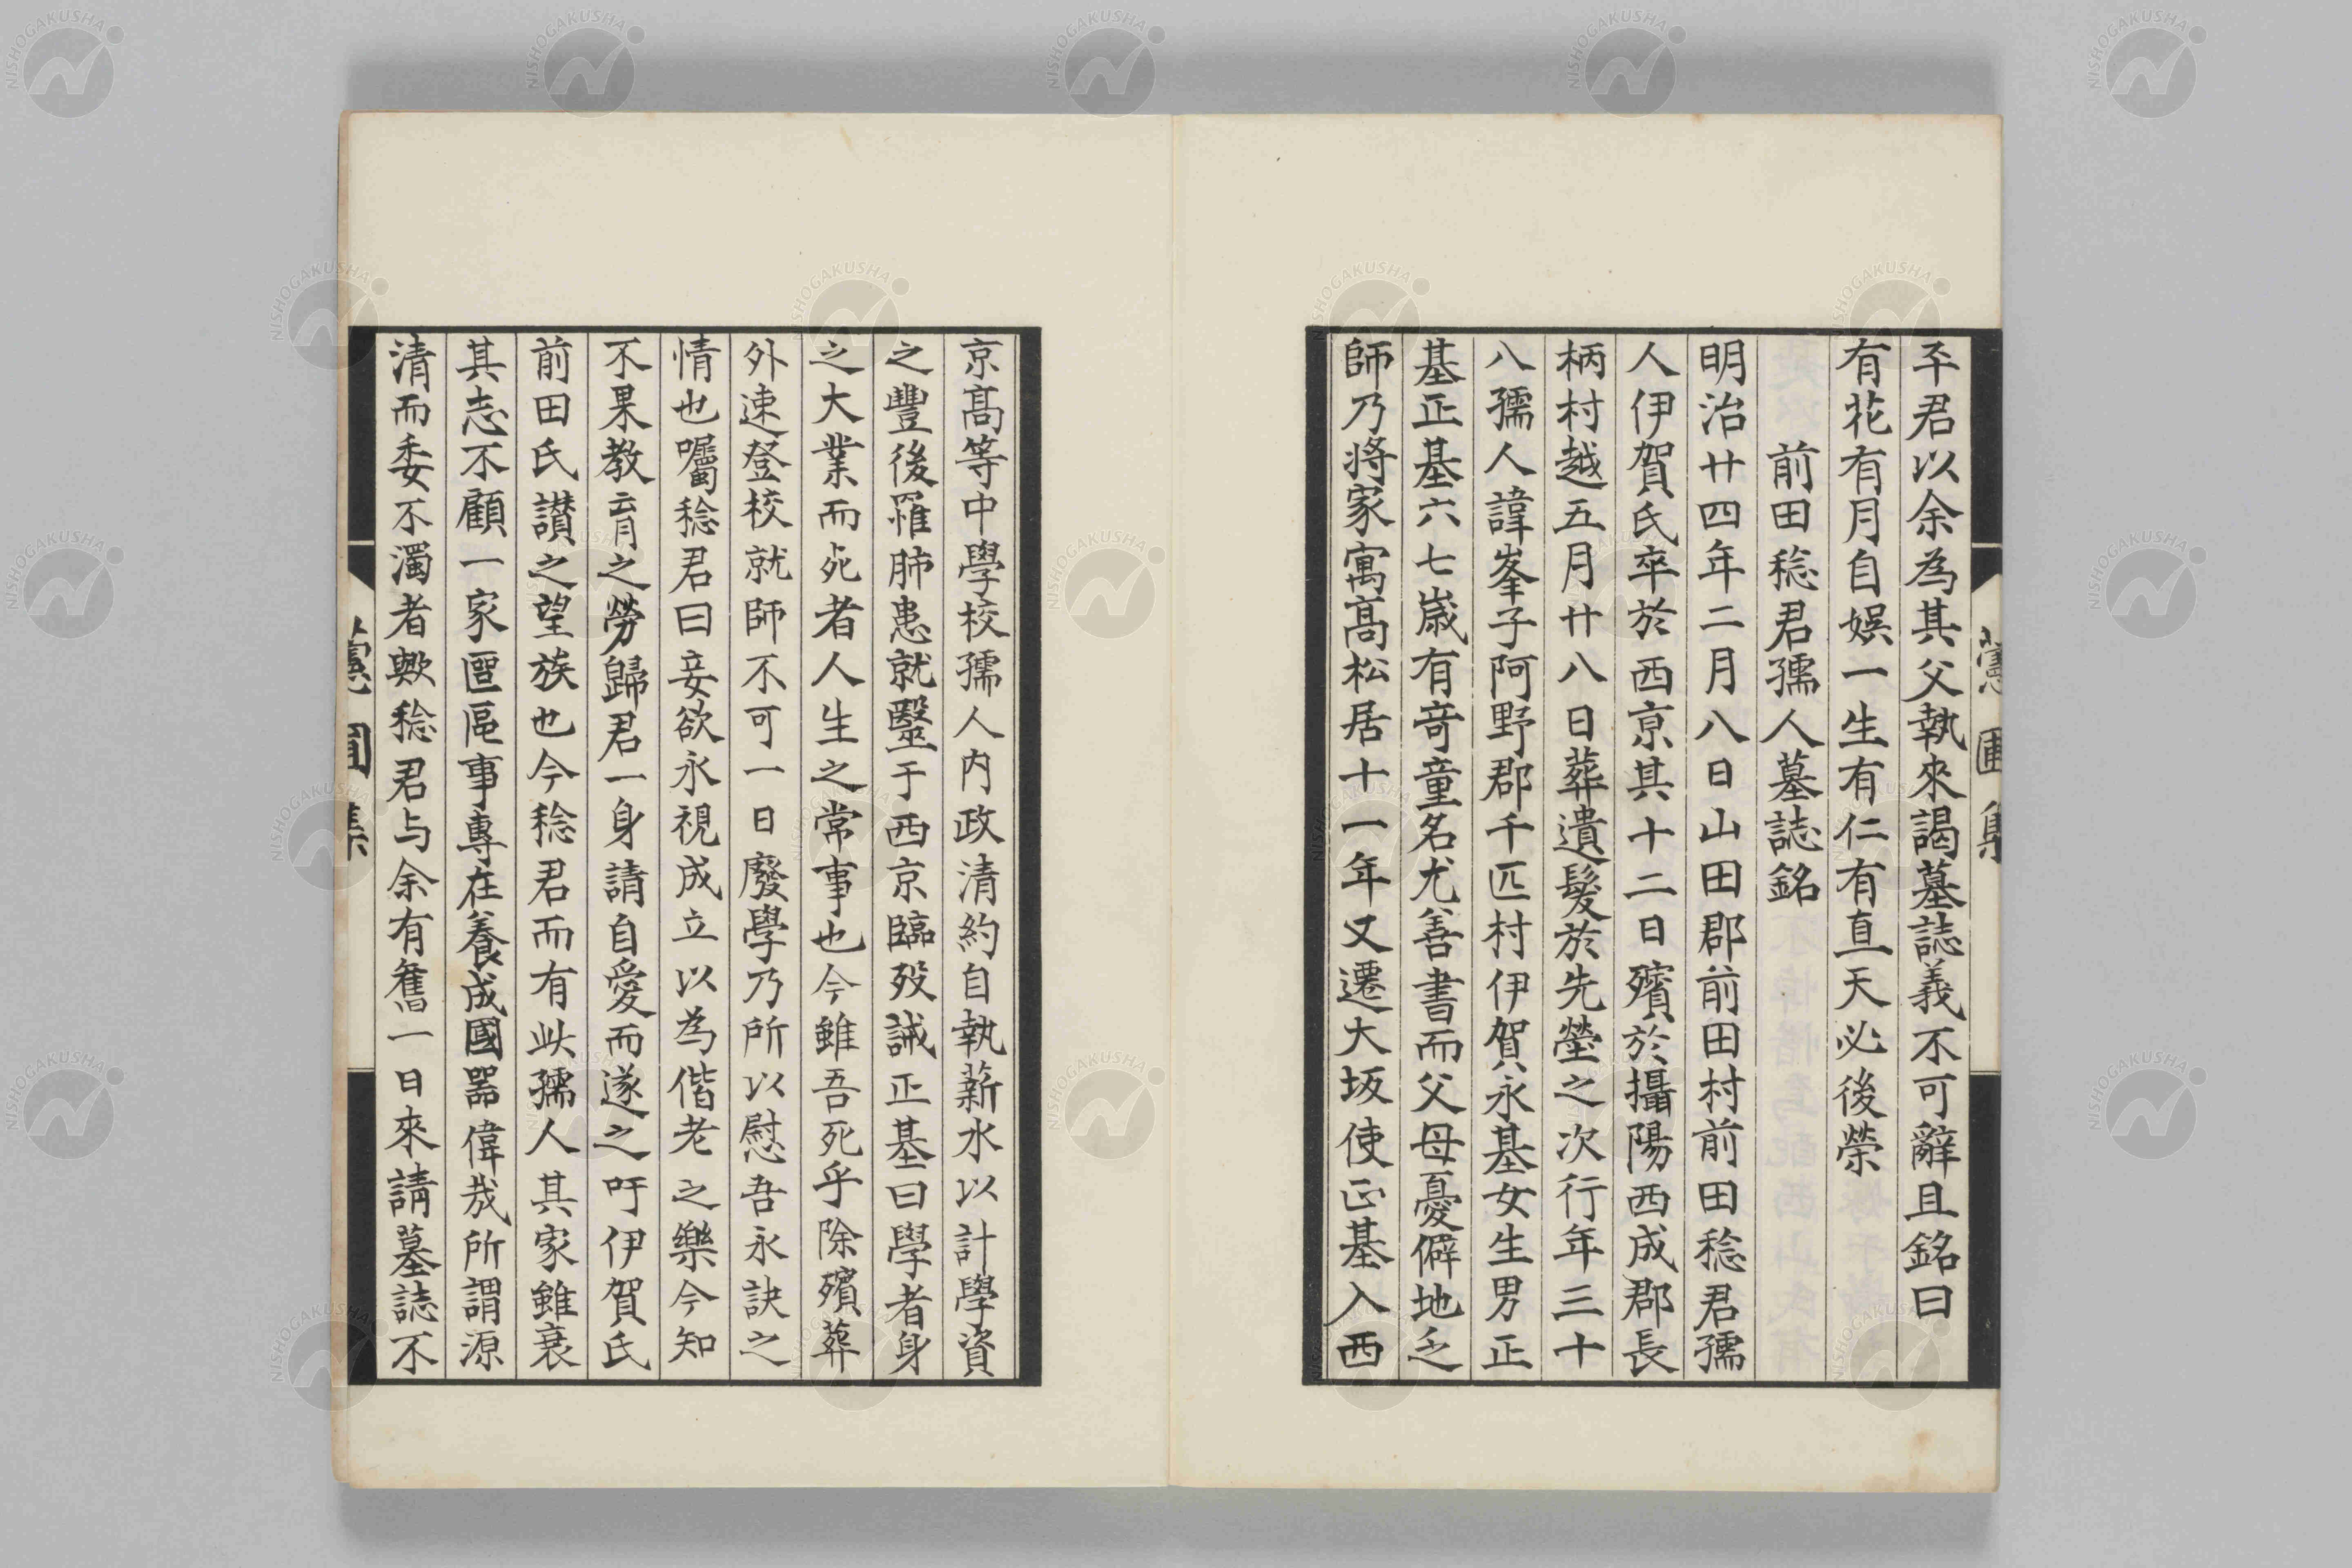 平君以余為其父執來謁墓誌義不可辭且銘曰
有花有月自娯一生有仁有直天必後榮
前田稔君孺人墓誌銘
明治廿四年二月八日山田郡前田村前田稔君孺
人伊賀氏卒於西京其十二日殯於攝陽西成郡長
柄村越五月廿八日葬遺髮於先塋之次行年三十
八孺人諱峯子阿野郡千匹村伊賀永基女生男正
基正基六七歳有竒童名尤善書而父母憂僻地乏
師乃將家寓髙松居十一年又遷大坂使正基入西
京髙等中學校孺人内政清約自執薪水以計學資
之豐後罹肺患就毉于西京臨歿誡正基曰學者身
之大業而死者人生之常事也今雖吾死乎除殯葬
外速登校就師不可一日廢學乃所以慰吾永訣之
情也囑稔君曰妾欲永視成立以為偕老之樂今知
不果教育之勞歸君一身請自愛而遂之吁伊賀氏
前田氏讃之望族也今稔君而有此孺人其家雖衰
其志不顧一家區區事專在養成國噐偉哉所謂源
清而委不濁者歟稔君与余有舊一日來請墓誌不
NISHOGAKUSHA